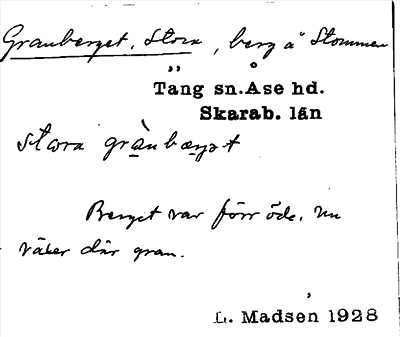 Granberget, Stora, berg å Stommen
Täng sn. Åse hd.
Skarab. län
stora grànbærjet
Berget var förr öde, nu
växer där gran.
L. Madsen 1928